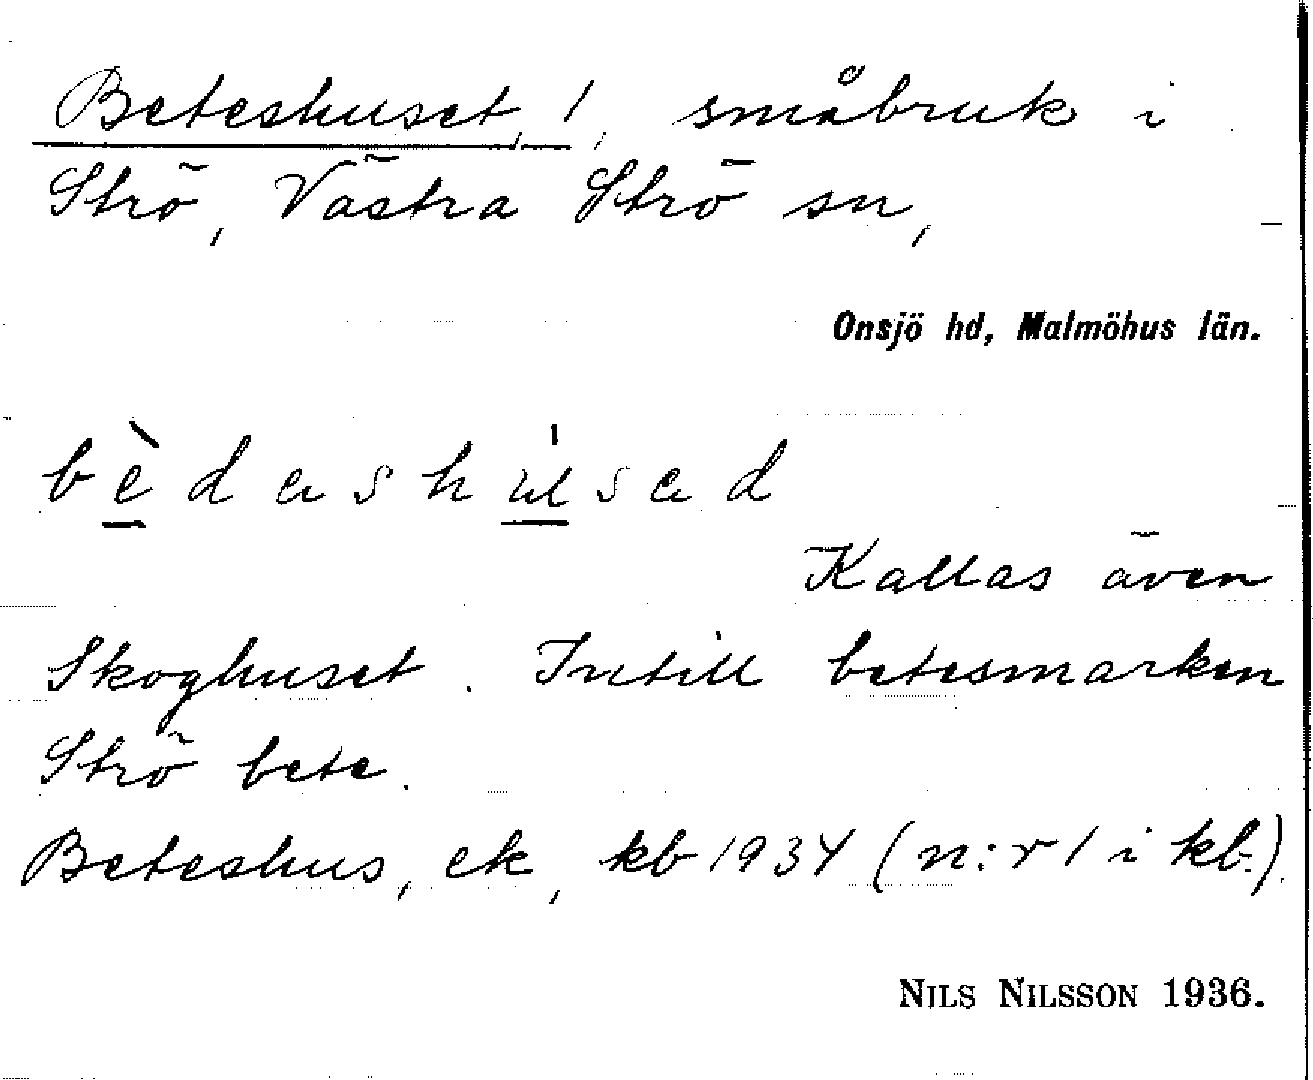 Beteshuset, 1, småbruk i
Strö, Västra Strö sn,
Onsjö hd, Malmöhus län.
bèdashúsad
Kallas även
Skoghuset. Intill betesmarken
Strö bete.
Beteshus, ek, kb 1934 (n:r 1 i kb.)
NILS NILSSON 1936.